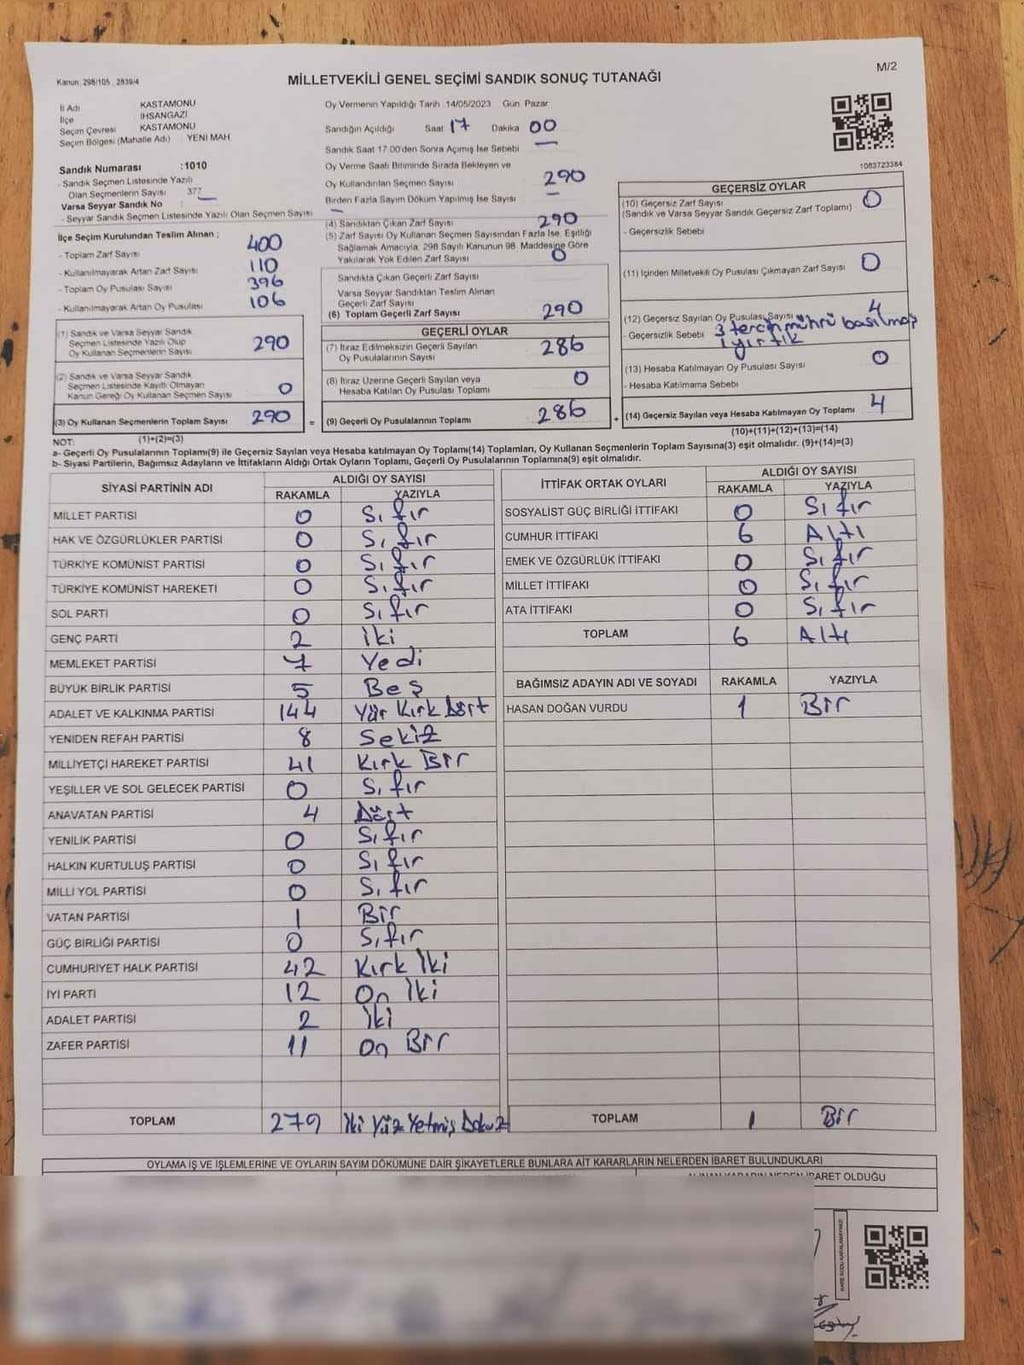 Kanun: 298/105, 2839/4
MİLLETVEKİLİ GENEL SEÇİMİ SANDIK SONUÇ TUTANAĞI
M/2
İl Adı KASTAMONU
İlçe İHSANGAZİ
Seçim Çevresi KASTAMONU
Seçim Bölgesi (Mahalle Adı) : YENİ MAH
Sandık Numarası :1010
- Sandık Seçmen Listesinde Yazılı
Olan Seçmenlerin Sayısı 377
Varsa Seyyar Sandık No :
- Seyyar Sandık Seçmen Listesinde Yazılı Olan Seçmen Sayısı
İlçe Seçim Kurulundan Teslim Alınan ;
- Toplam Zarf Sayısı 400
- Kullanılmayarak Artan Zarf Sayısı 110
- Toplam Oy Pusulası Sayısı 396
- Kullanılmayarak Artan Oy Pusulası 106
(1) Sandık ve Varsa Seyyar Sandık
Seçmen Listesinde Yazılı Olup
Oy Kullanan Seçmenlerin Sayısı 290
(2) Sandık ve Varsa Seyyar Sandık
Seçmen Listesinde Kayıtlı Olmayan
Kanun Gereği Oy Kullanan Seçmen Sayısı 0
(3) Oy Kullanan Seçmenlerin Toplam Sayısı 290
(1)+(2)=(3)
Oy Vermenin Yapıldığı Tarih :14/05/2023 Gün Pazar
Sandığın Açıldığı Saat 17 Dakika 00
Sandık Saat 17.00'den Sonra Açılmış İse Sebebi —
Oy Verme Saati Bitiminde Sırada Bekleyen ve
Oy Kullandırılan Seçmen Sayısı 290
Birden Fazla Sayım Döküm Yapılmış İse Sayısı —
(4) Sandıktan Çıkan Zarf Sayısı 290
(5) Zarf Sayısı Oy Kullanan Seçmen Sayısından Fazla İse, Eşitliği
Sağlamak Amacıyla, 298 Sayılı Kanunun 98. Maddesine Göre
Yakılarak Yok Edilen Zarf Sayısı 0
Sandıkta Çıkan Geçerli Zarf Sayısı
Varsa Seyyar Sandıktan Teslim Alınan
Geçerli Zarf Sayısı
(6) Toplam Geçerli Zarf Sayısı 290
GEÇERLİ OYLAR
(7) İtiraz Edilmeksizin Geçerli Sayılan
Oy Pusulalarının Sayısı 286
(8) İtiraz Üzerine Geçerli Sayılan veya
Hesaba Katılan Oy Pusulası Toplamı 0
= (9) Geçerli Oy Pusulalarının Toplamı 286
1083723384
GEÇERSİZ OYLAR
(10) Geçersiz Zarf Sayısı
(Sandık ve Varsa Seyyar Sandık Geçersiz Zarf Toplamı) 0
- Geçersizlik Sebebi
(11) İçinden Milletvekili Oy Pusulası Çıkmayan Zarf Sayısı 0
(12) Geçersiz Sayılan Oy Pusulası Sayısı 4
- Geçersizlik Sebebi 3 tercih mührü basılmış
1 yırtık
(13) Hesaba Katılmayan Oy Pusulası Sayısı 0
- Hesaba Katılmama Sebebi
+ (14) Geçersiz Sayılan veya Hesaba Katılmayan Oy Toplamı 4
(10)+(11)+(12)+(13)=(14)
NOT:
a- Geçerli Oy Pusulalarının Toplamı(9) ile Geçersiz Sayılan veya Hesaba katılmayan Oy Toplamı(14) Toplamları, Oy Kullanan Seçmenlerin Toplam Sayısına(3) eşit olmalıdır. (9)+(14)=(3)
b- Siyasi Partilerin, Bağımsız Adayların ve İttifakların Aldığı Ortak Oyların Toplamı, Geçerli Oy Pusulalarının Toplamına(9) eşit olmalıdır.
SİYASİ PARTİNİN ADI ALDIĞI OY SAYISI
RAKAMLA YAZIYLA
MİLLET PARTİSİ 0 Sıfır
HAK VE ÖZGÜRLÜKLER PARTİSİ 0 Sıfır
TÜRKİYE KOMÜNİST PARTİSİ 0 Sıfır
TÜRKİYE KOMÜNİST HAREKETİ 0 Sıfır
SOL PARTİ 0 Sıfır
GENÇ PARTİ 2 İki
MEMLEKET PARTİSİ 7 Yedi
BÜYÜK BİRLİK PARTİSİ 5 Beş
ADALET VE KALKINMA PARTİSİ 144 Yüz Kırk Dört
YENİDEN REFAH PARTİSİ 8 Sekiz
MİLLİYETÇİ HAREKET PARTİSİ 41 Kırk Bir
YEŞİLLER VE SOL GELECEK PARTİSİ 0 Sıfır
ANAVATAN PARTİSİ 4 Dört
YENİLİK PARTİSİ 0 Sıfır
HALKIN KURTULUŞ PARTİSİ 0 Sıfır
MİLLİ YOL PARTİSİ 0 Sıfır
VATAN PARTİSİ 1 Bir
GÜÇ BİRLİĞİ PARTİSİ 0 Sıfır
CUMHURİYET HALK PARTİSİ 42 Kırk İki
İYİ PARTİ 12 On İki
ADALET PARTİSİ 2 İki
ZAFER PARTİSİ 11 On Bir
TOPLAM 279 İki Yüz Yetmiş Dokuz
İTTİFAK ORTAK OYLARI ALDIĞI OY SAYISI
RAKAMLA YAZIYLA
SOSYALİST GÜÇ BİRLİĞİ İTTİFAKI 0 Sıfır
CUMHUR İTTİFAKI 6 Altı
EMEK VE ÖZGÜRLÜK İTTİFAKI 0 Sıfır
MİLLET İTTİFAKI 0 Sıfır
ATA İTTİFAKI 0 Sıfır
TOPLAM 6 Altı
BAĞIMSIZ ADAYIN ADI VE SOYADI RAKAMLA YAZIYLA
HASAN DOĞAN VURDU 1 Bir
TOPLAM 1 Bir
OYLAMA İŞ VE İŞLEMLERİNE VE OYLARIN SAYIM DÖKÜMÜNE DAİR ŞİKAYETLERLE BUNLARA AİT KARARLARIN NELERDEN İBARET BULUNDUKLARI
ALINAN KARARIN NEDEN İBARET OLDUĞU